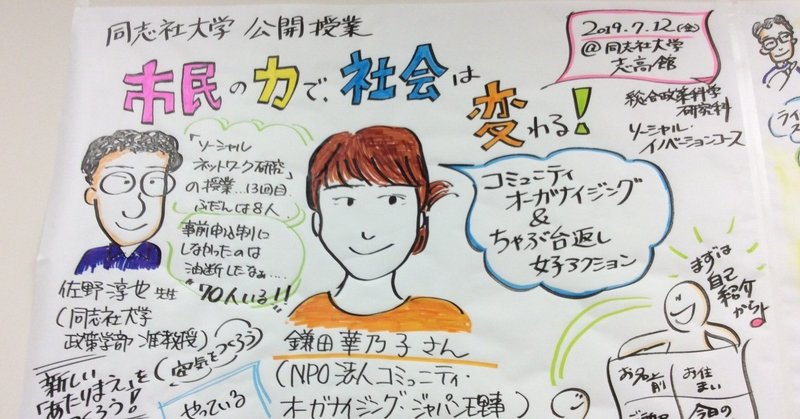 同志社大学 公開授業
市民の力で、社会は
変わる!
2019.7.12(金)
@同志社大学
志高館
総合政策科学
研究科
ソーシャル・
イノベーションコース
「ソーシャル
ネットワーク研究」
の授業…13回目
ふだんは8人
事前申込制に
しなかったのは
油断したなぁ…
70人いる!!
佐野淳也 先生
(同志社大学
政策学部 准教授)
コミュニティ
オーガナイジング
&
ちゃぶ台返し
女子アクション
鎌田華乃子さん
(NPO法人コミュニティ・
オーガナイジング・ジャパン理事)
まずは
自己
紹介
から♪
お名前
お住まい
今日の
新しい
「あたりまえ」を
つくろう!
(空気をつくろう)
やっている